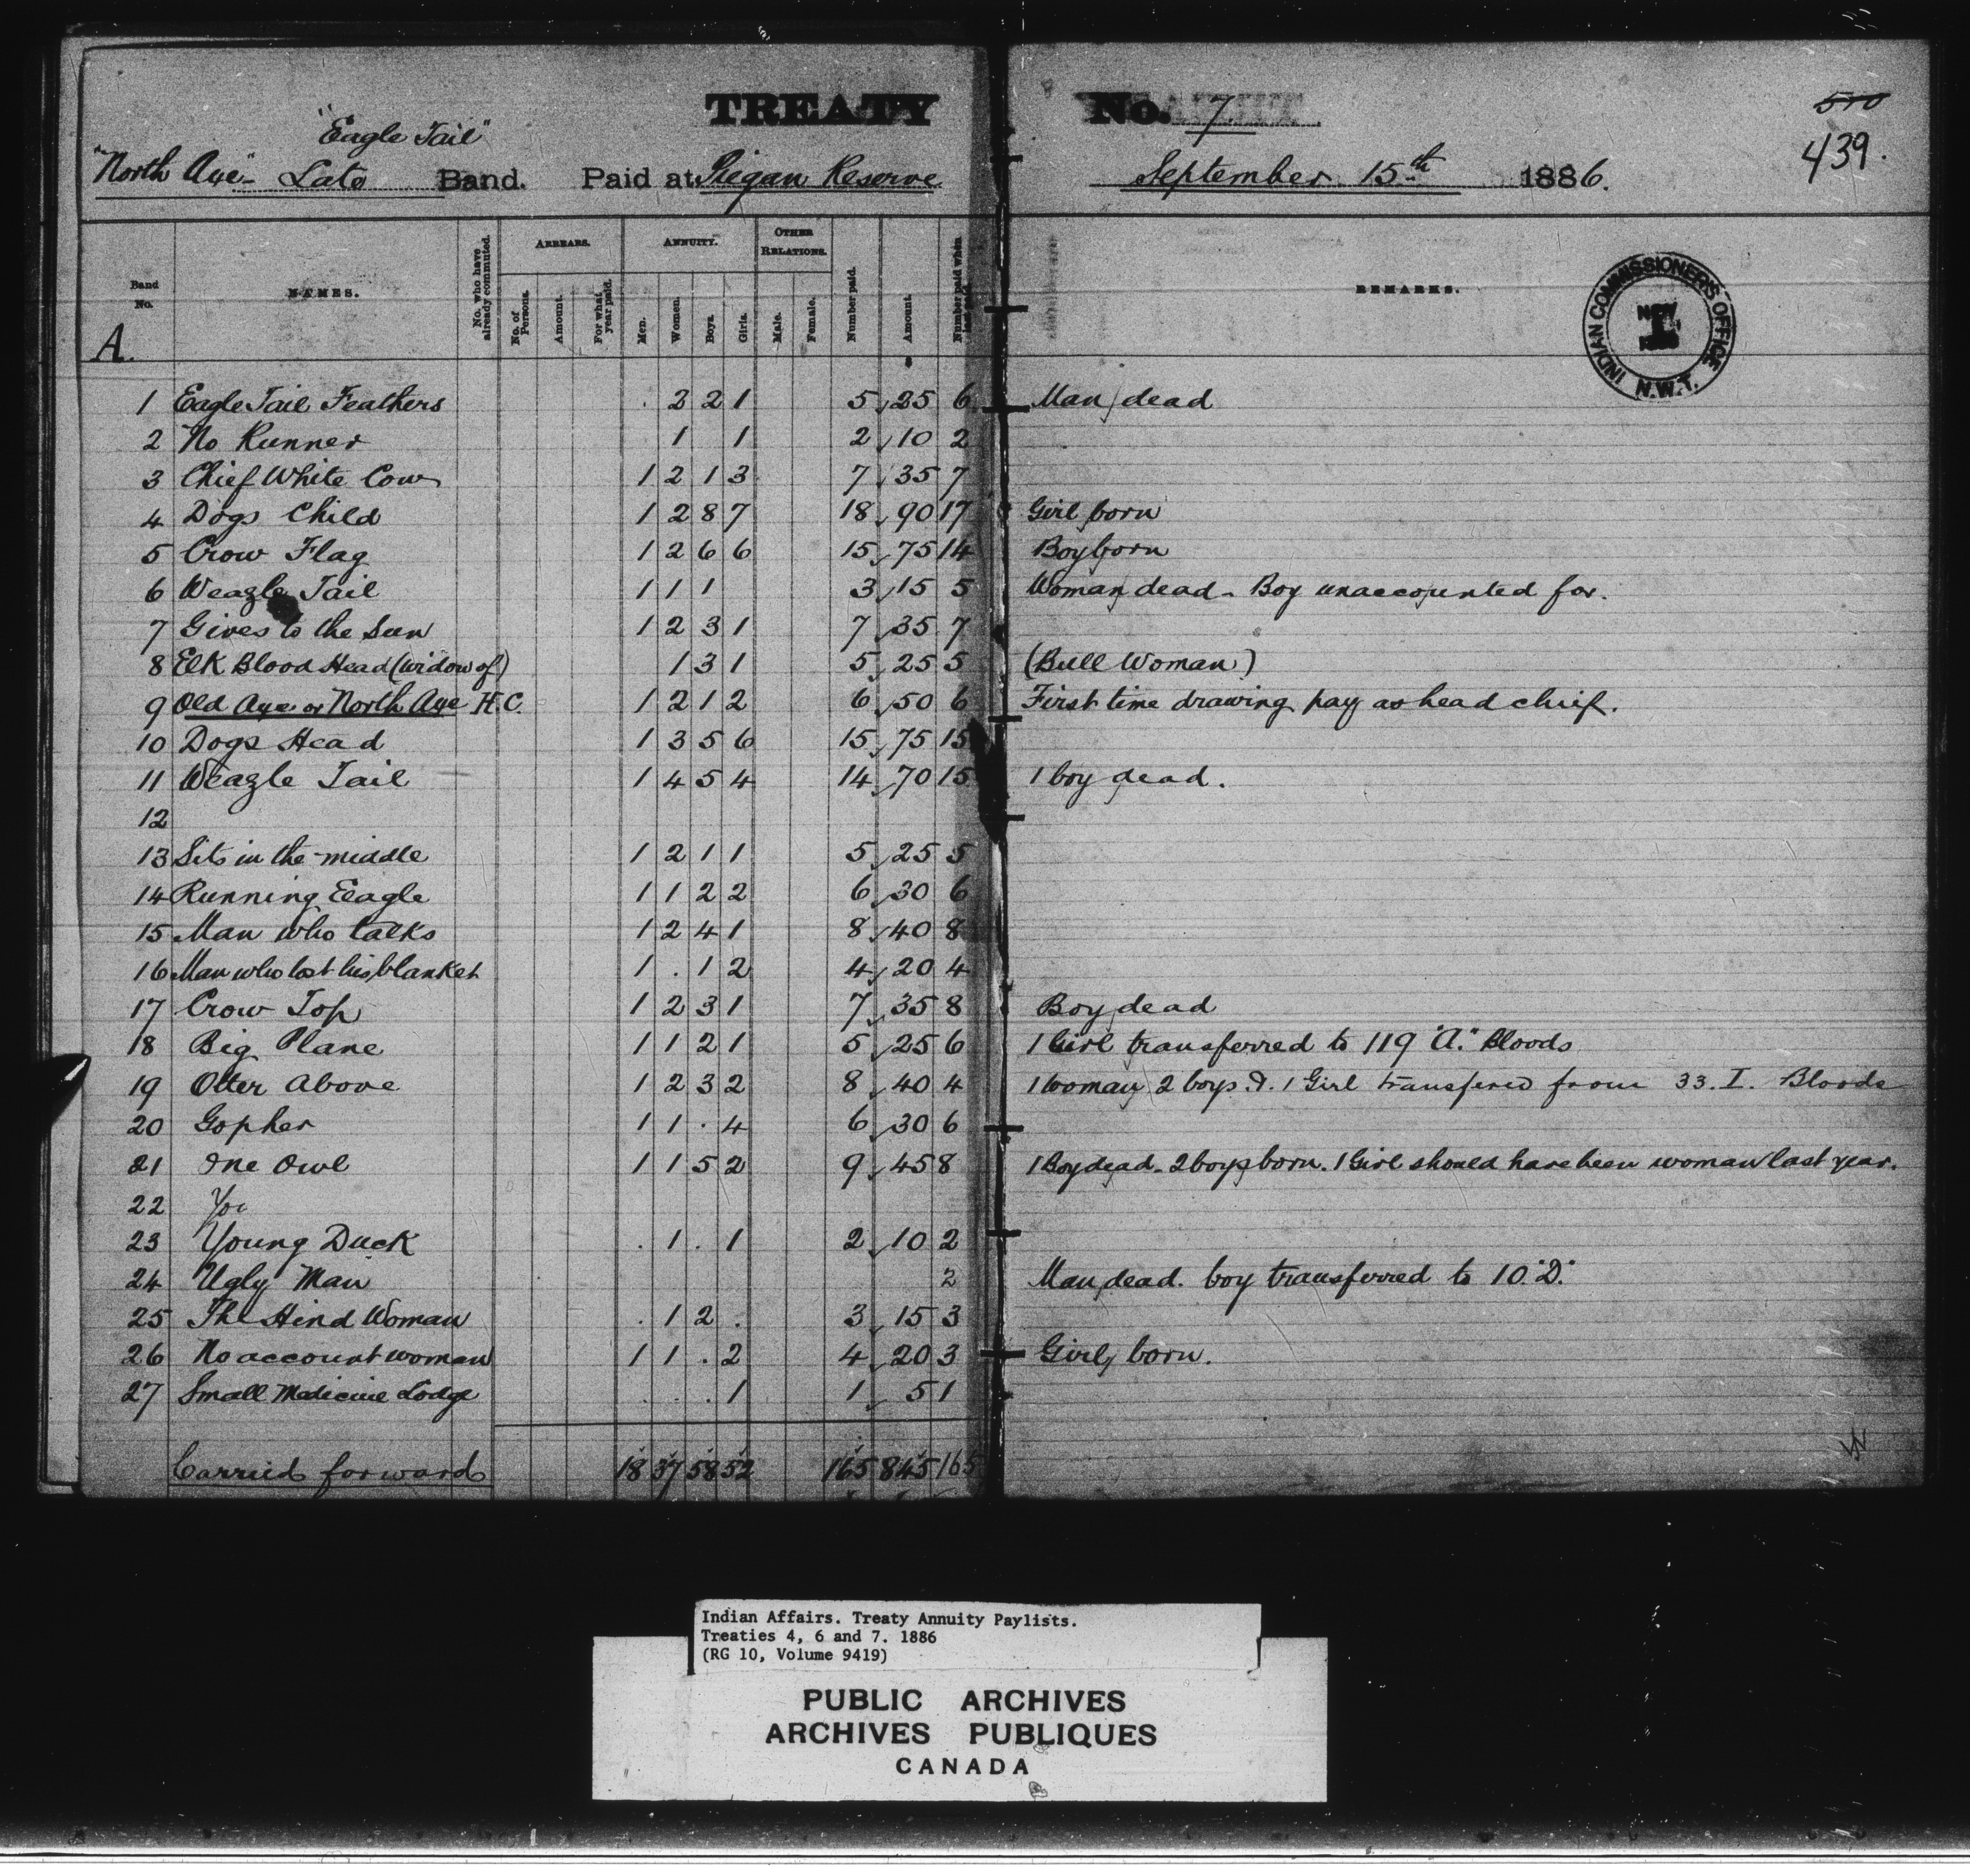 TREATY No. 7 510
"Eagle Tail" 439.
"North Axe" Late Band. Paid at Piegan Reserve September 15th 1886.
Band No. NAMES. No. who have already commuted. ARREARS. No. of Persons. Amount. For what year paid. ANNUITY. Men. Women. Boys. Girls. OTHER RELATIONS. Male. Female. Number paid. Amount. Number paid when REMARKS.
INDIAN COMMISSIONER'S OFFICE N.W.T. NOV 1
A.
1 Eagle Tail Feathers . 2 2 1 5 25 6 Man dead
2 No Runner 1 1 2 10 2
3 Chief White Cow 1 2 1 3 7 35 7
4 Dogs Child 1 2 8 7 18 90 17 Girl born
5 Crow Flag 1 2 6 6 15 75 14 Boy born
6 Weazle Tail 1 1 1 3 15 5 Woman dead - Boy unaccounted for.
7 Gives to the Sun 1 2 3 1 7 35 7
8 Elk Blood Head (widow of) 1 3 1 5 25 5 (Bull Woman)
9 Old Axe or North Axe H.C. 1 2 1 2 6 50 6 First time drawing pay as head chief.
10 Dogs Head 1 3 5 6 15 75 15
11 Weazle Tail 1 4 5 4 14 70 15 1 boy dead.
12
13 Sits in the middle 1 2 1 1 5 25 5
14 Running Eeagle 1 1 2 2 6 30 6
15 Man who talks 1 2 4 1 8 40 8
16 Man who lost his blanket 1 . 1 2 4 20 4
17 Crow Top 1 2 3 1 7 35 8 Boy dead
18 Big Plane 1 1 2 1 5 25 6 1 Girl transferred to 119 "A." Bloods
19 Otter Above 1 2 3 2 8 40 4 1 woman 2 boys & 1 Girl transfered from 33. I. Bloods
20 Gopher 1 1 . 4 6 30 6
21 One Owl 1 1 5 2 9 45 8 1 Boy dead - 2 boys born. 1 Girl should have been woman last year.
22 You
23 Young Duck . 1 . 1 2 10 2
24 Ugly Man 2 Man dead. boy transferred to 10 "D."
25 The Hind Woman . 1 2 . 3 15 3
26 No account woman 1 1 . 2 4 20 3 Girl born.
27 Small Medicine Lodge . . . 1 1 5 1
Carried forward 18 37 58 52 165 845 165
Indian Affairs. Treaty Annuity Paylists.
Treaties 4, 6 and 7. 1886
(RG 10, Volume 9419)
PUBLIC ARCHIVES
ARCHIVES PUBLIQUES
CANADA